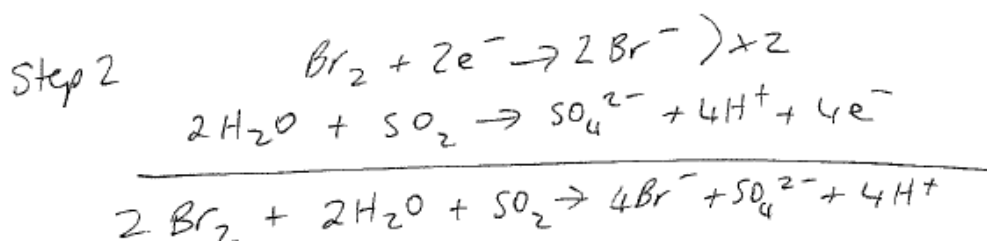 Step 2 Br₂ + 2e⁻ → 2Br⁻ ) x2
2H₂O + SO₂ → SO₄²⁻ + 4H⁺ + 4e⁻
2 Br₂ + 2H₂O + SO₂ → 4Br⁻ + SO₄²⁻ + 4H⁺